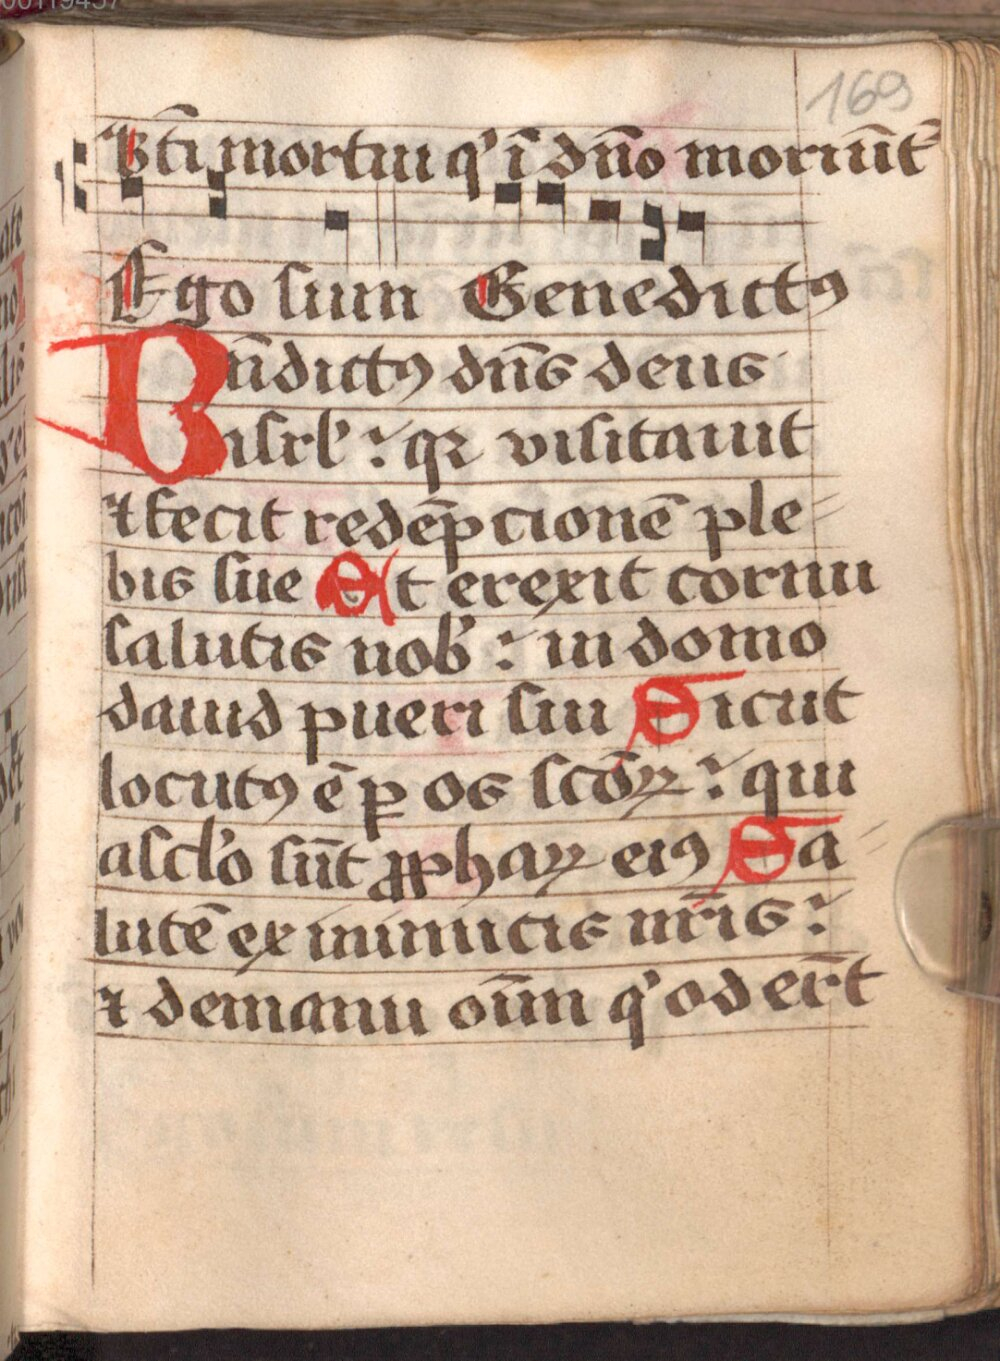 169
Bt̄i mortui q' ī dn̄o moriūt
Ego sum Benedictꝰ
Bn̄dictꝰ dn̄s deus
isrl' : qꝛ visitauit
⁊ fecit redēpcionē ple-
bis sue Et erexit cornu
salutis nob' : in domo
dauid pueri sui Sicut
locutꝰ ē ꝑ os scōꝝ : qui
a sclo sūt ꝓphaꝝ eiꝰ Sa-
lutē ex inimicis nr̄is :
⁊ de manu oīm q' oder̄t